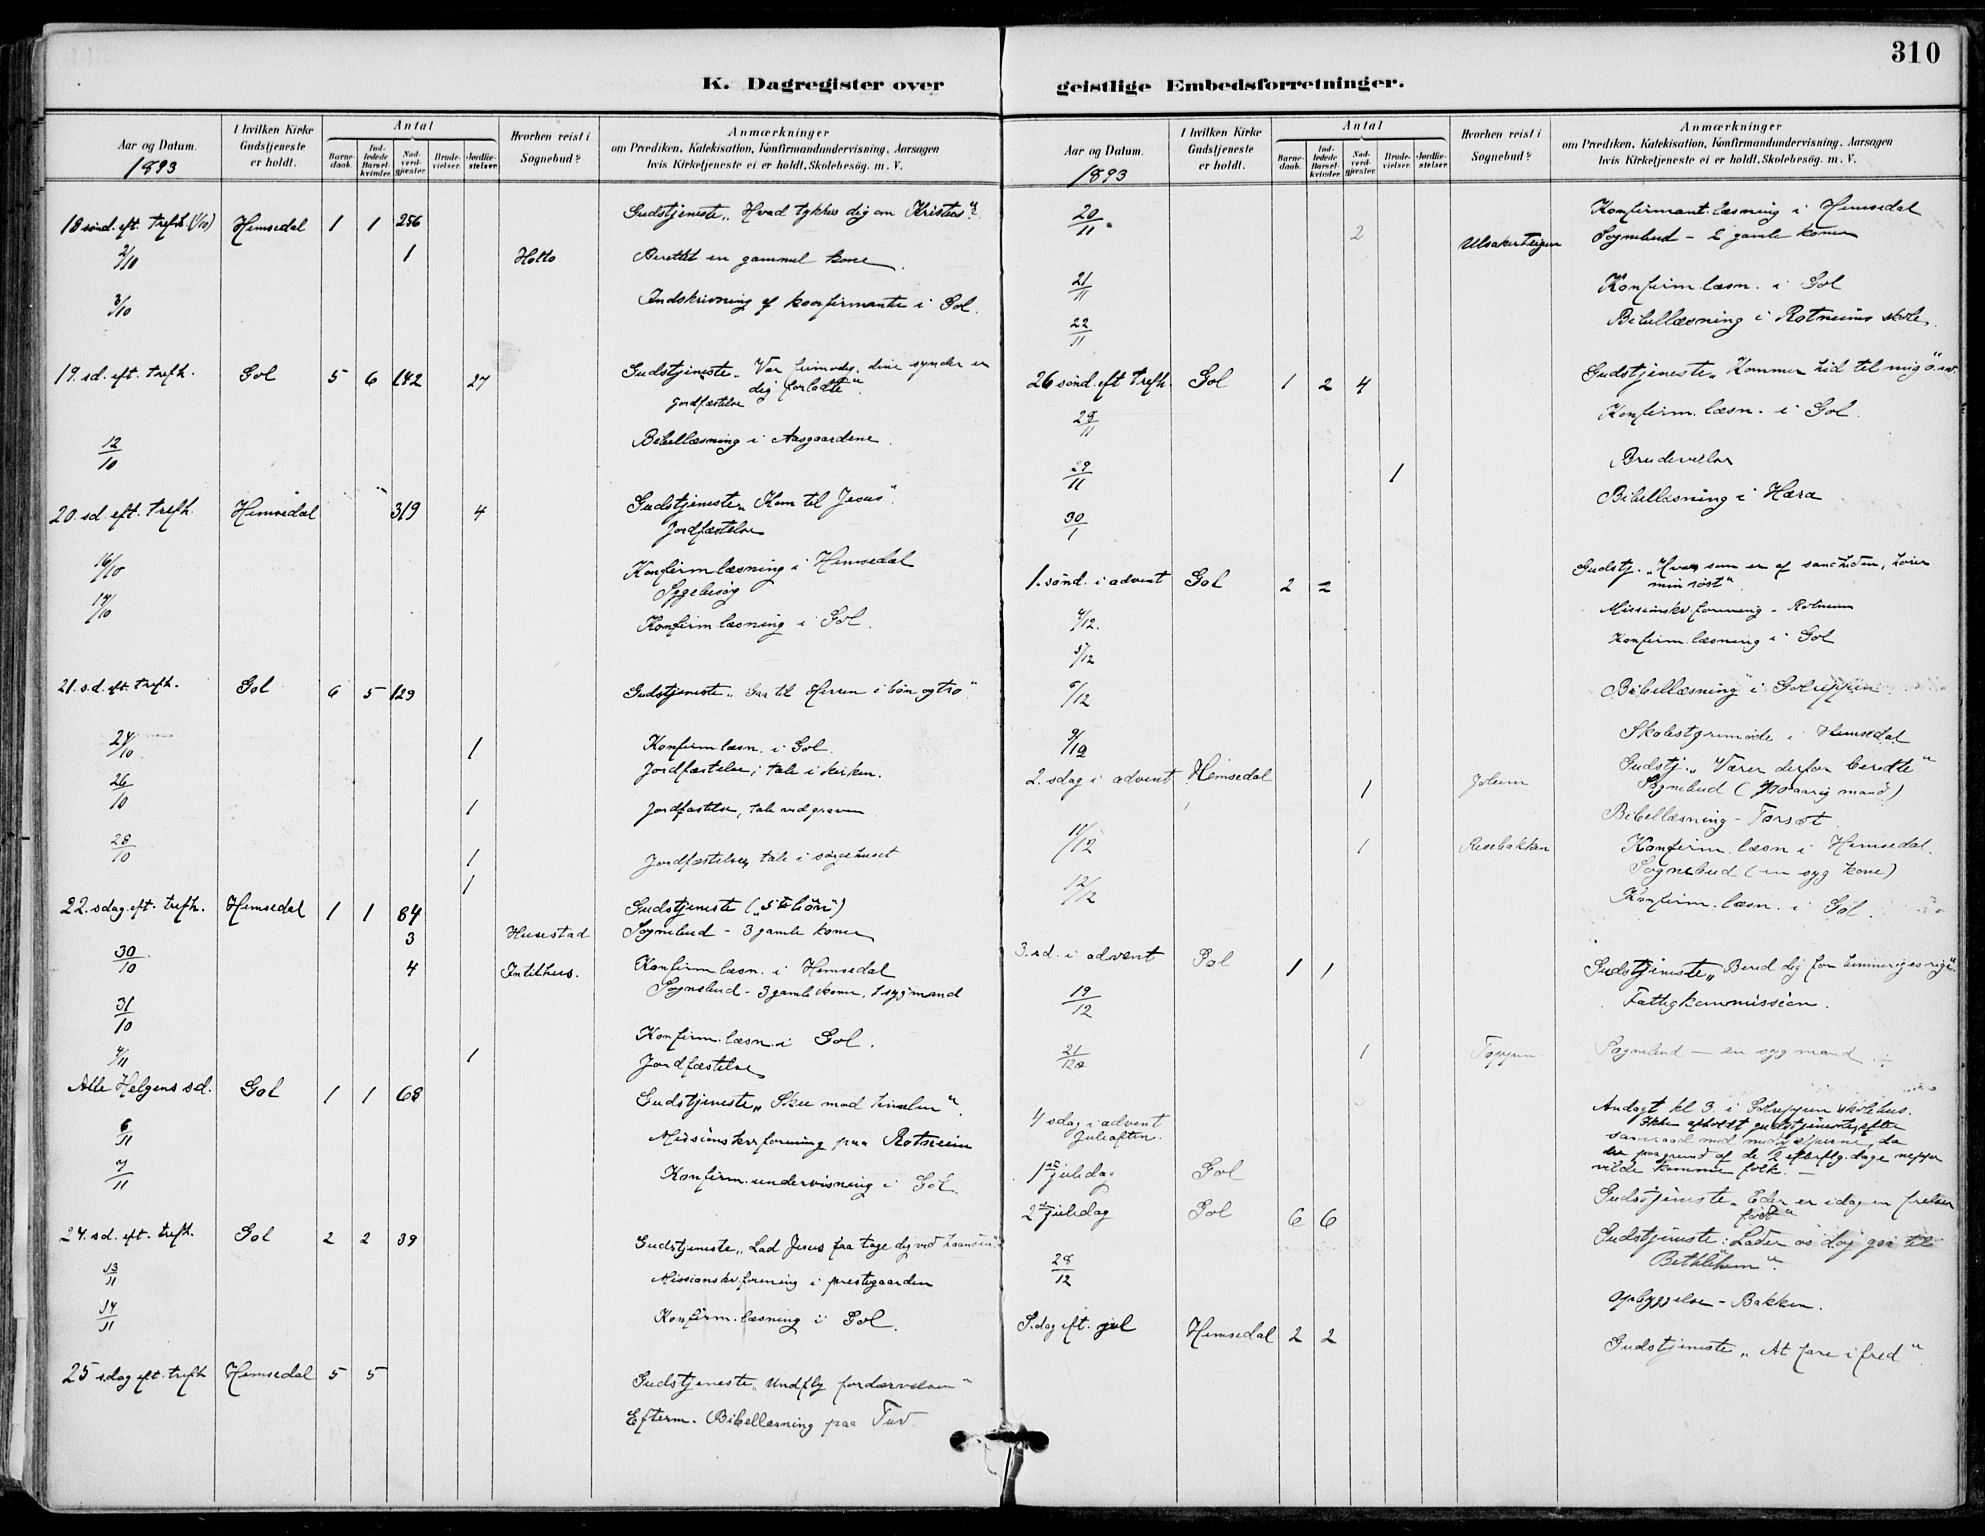 310
K. Dagregister over geistlige Embedsforretninger.
Aar og Datum.
1893
I hvilken Kirke Gudstjeneste er holdt.
Antal
Barnedaab.
Indledede Barselkvinder.
Nadverdgjester.
Brudevielser.
Jordfæstelser.
Hvorhen reist i Sognebud?
Anmærkninger
om Prædiken, Katekisation, Konfirmandundervisning, Aarsagen
hvis Kirketjeneste ei er holdt, Skolebesög. m. V.
18 sönd. eft. trefh. (1/10) Hemsedal 1 1 256 Gudstjeneste „Hvad tykkes dig om Kristus“?
2/10 1 Holto Berettet en gammel kone.
3/10 Indskrivning af konfirmanter i Gol.
19. sd. eft. trefh. Gol 5 6 142 27 Gudstjeneste „Vær frimodig, dine synder er
dig forladte“.
Jordfæstelse
12/10 Bibellæsning i Aasgaardene.
20. sd. eft. trefh. Hemsedal 319 4 Gudstjeneste „Kom til Jesus“.
Jordfæstelse
16/10 Konfirm læsning i Hemsedal
Sygebesög
17/10 Konfirm. læsning i Gol.
21. s.d. eft. trefh. Gol 6 5 129 Gudstjeneste „Gaa til Herren i bön og tro“
24/10 1 Konfirm læsn. i Gol.
Jordfæstelse; tale i kirken.
26/10 1 Jordfæstelse, tale ved graven
28/10 1 Jordfæstelse, tale i sörgehuset
1
22. sdag. eft. trefh. Hemsedal 1 1 84 Gudstjeneste („5te bön“)
3 Husestad Sognebud - 3 gamle koner
30/10 4 Intelhus. Konfirm. læsn. i Hemsedal
Sognebud - 3 gamle koner, 1 syg mand
31/10 Konfirm. læsn. i Gol.
4/11 1 Jordfæstelse
Alle Helgens sd. Gol 1 1 68 Gudstjeneste „Skue mod himlen“.
6/11 Missionskv.forening paa Rotneim
7/11 Konfirm. undervisning i Gol.
24. sd. eft. trefh. Gol 2 2 39 Gudstjeneste „Lad Jesus faa tage dig ved haanden“
13/11 Missionskv.forening i prestegaarden
14/11 Konfirm. læsning i Gol.
25 sdag eft. trefh Hemsedal 5 5 Gudstjeneste „Undfly fordærvelsen“
Efterm. Bibellæsning paa Tuv
Aar og Datum.
1893
I hvilken Kirke Gudstjeneste er holdt.
Antal
Barnedaab.
Indledede Barselkvinder.
Nadverdgjester.
Brudevielser.
Jordfæstelser.
Hvorhen reist i Sognebud?
Anmærkninger
om Prædiken, Katekisation, Konfirmandundervisning, Aarsagen
hvis Kirketjeneste ei er holdt, Skolebesög. m. V.
20/11 Konfirmant. læsning i Hemsedal
2 Ulsakerteigen Sognebud - 2 gamle koner
21/11 Konfirm. læsn. i Gol
22/11 Bibellæsning i Rotneims skole.
26 sönd. eft trefh. Gol 1 2 4 Gudstjeneste „Kommer hid til mig“ o.s.v.
28/11 Konfirm. læsn. i Gol.
29/11 1 Brudevielse
30/1 Bibellæsning i Hæra
1. sönd. i advent Gol 2 2 Gudstj. „Hver som er af sandheden, hörer
min röst“
4/12. Missionskv.forening - Rotneim
5/12 Konfirm. læsning i Gol
6/12 Bibellæsning i Golreppen
9/12 Skolestyremöde i Hemsedal
2. sdag i advent Hemsedal Gudstj. „Værer derfor beredte“
1 Sognebud ( aarig mand)
Bibellæsning -
11/12 1 Konfirm. læsn i Hemsedal.
Sognebud (en syg kone)
12/12 Konfirm. læsn. i Gol.
3. sd. i advent Gol 1 1 Gudstjeneste „Bered dig for himmeriges rige“.
19/12 Fattigkommission.
21/12 1 Sognebud - en syg mand
4 sdag i advent
Juleaften.
Andagt kl 3. i Golreppen skolehus.
Ikke afholdt gudstjeneste, efter
samraad med medhjelperne, da
der paa grund af de 2 efterflg. dage neppe
vilde komme folk. -
1ste juledag Gol Gudstjeneste „Eder er idag en frelser
födt“
2den juledag Gol 6 6 Gudstjeneste: „Lader os dog gaa til
Bethlehem“.
28/12 Opbyggelse - Bakken.
S.dag eft. jul Hemsedal 2 2 Gudstjeneste „At fare i fred“.